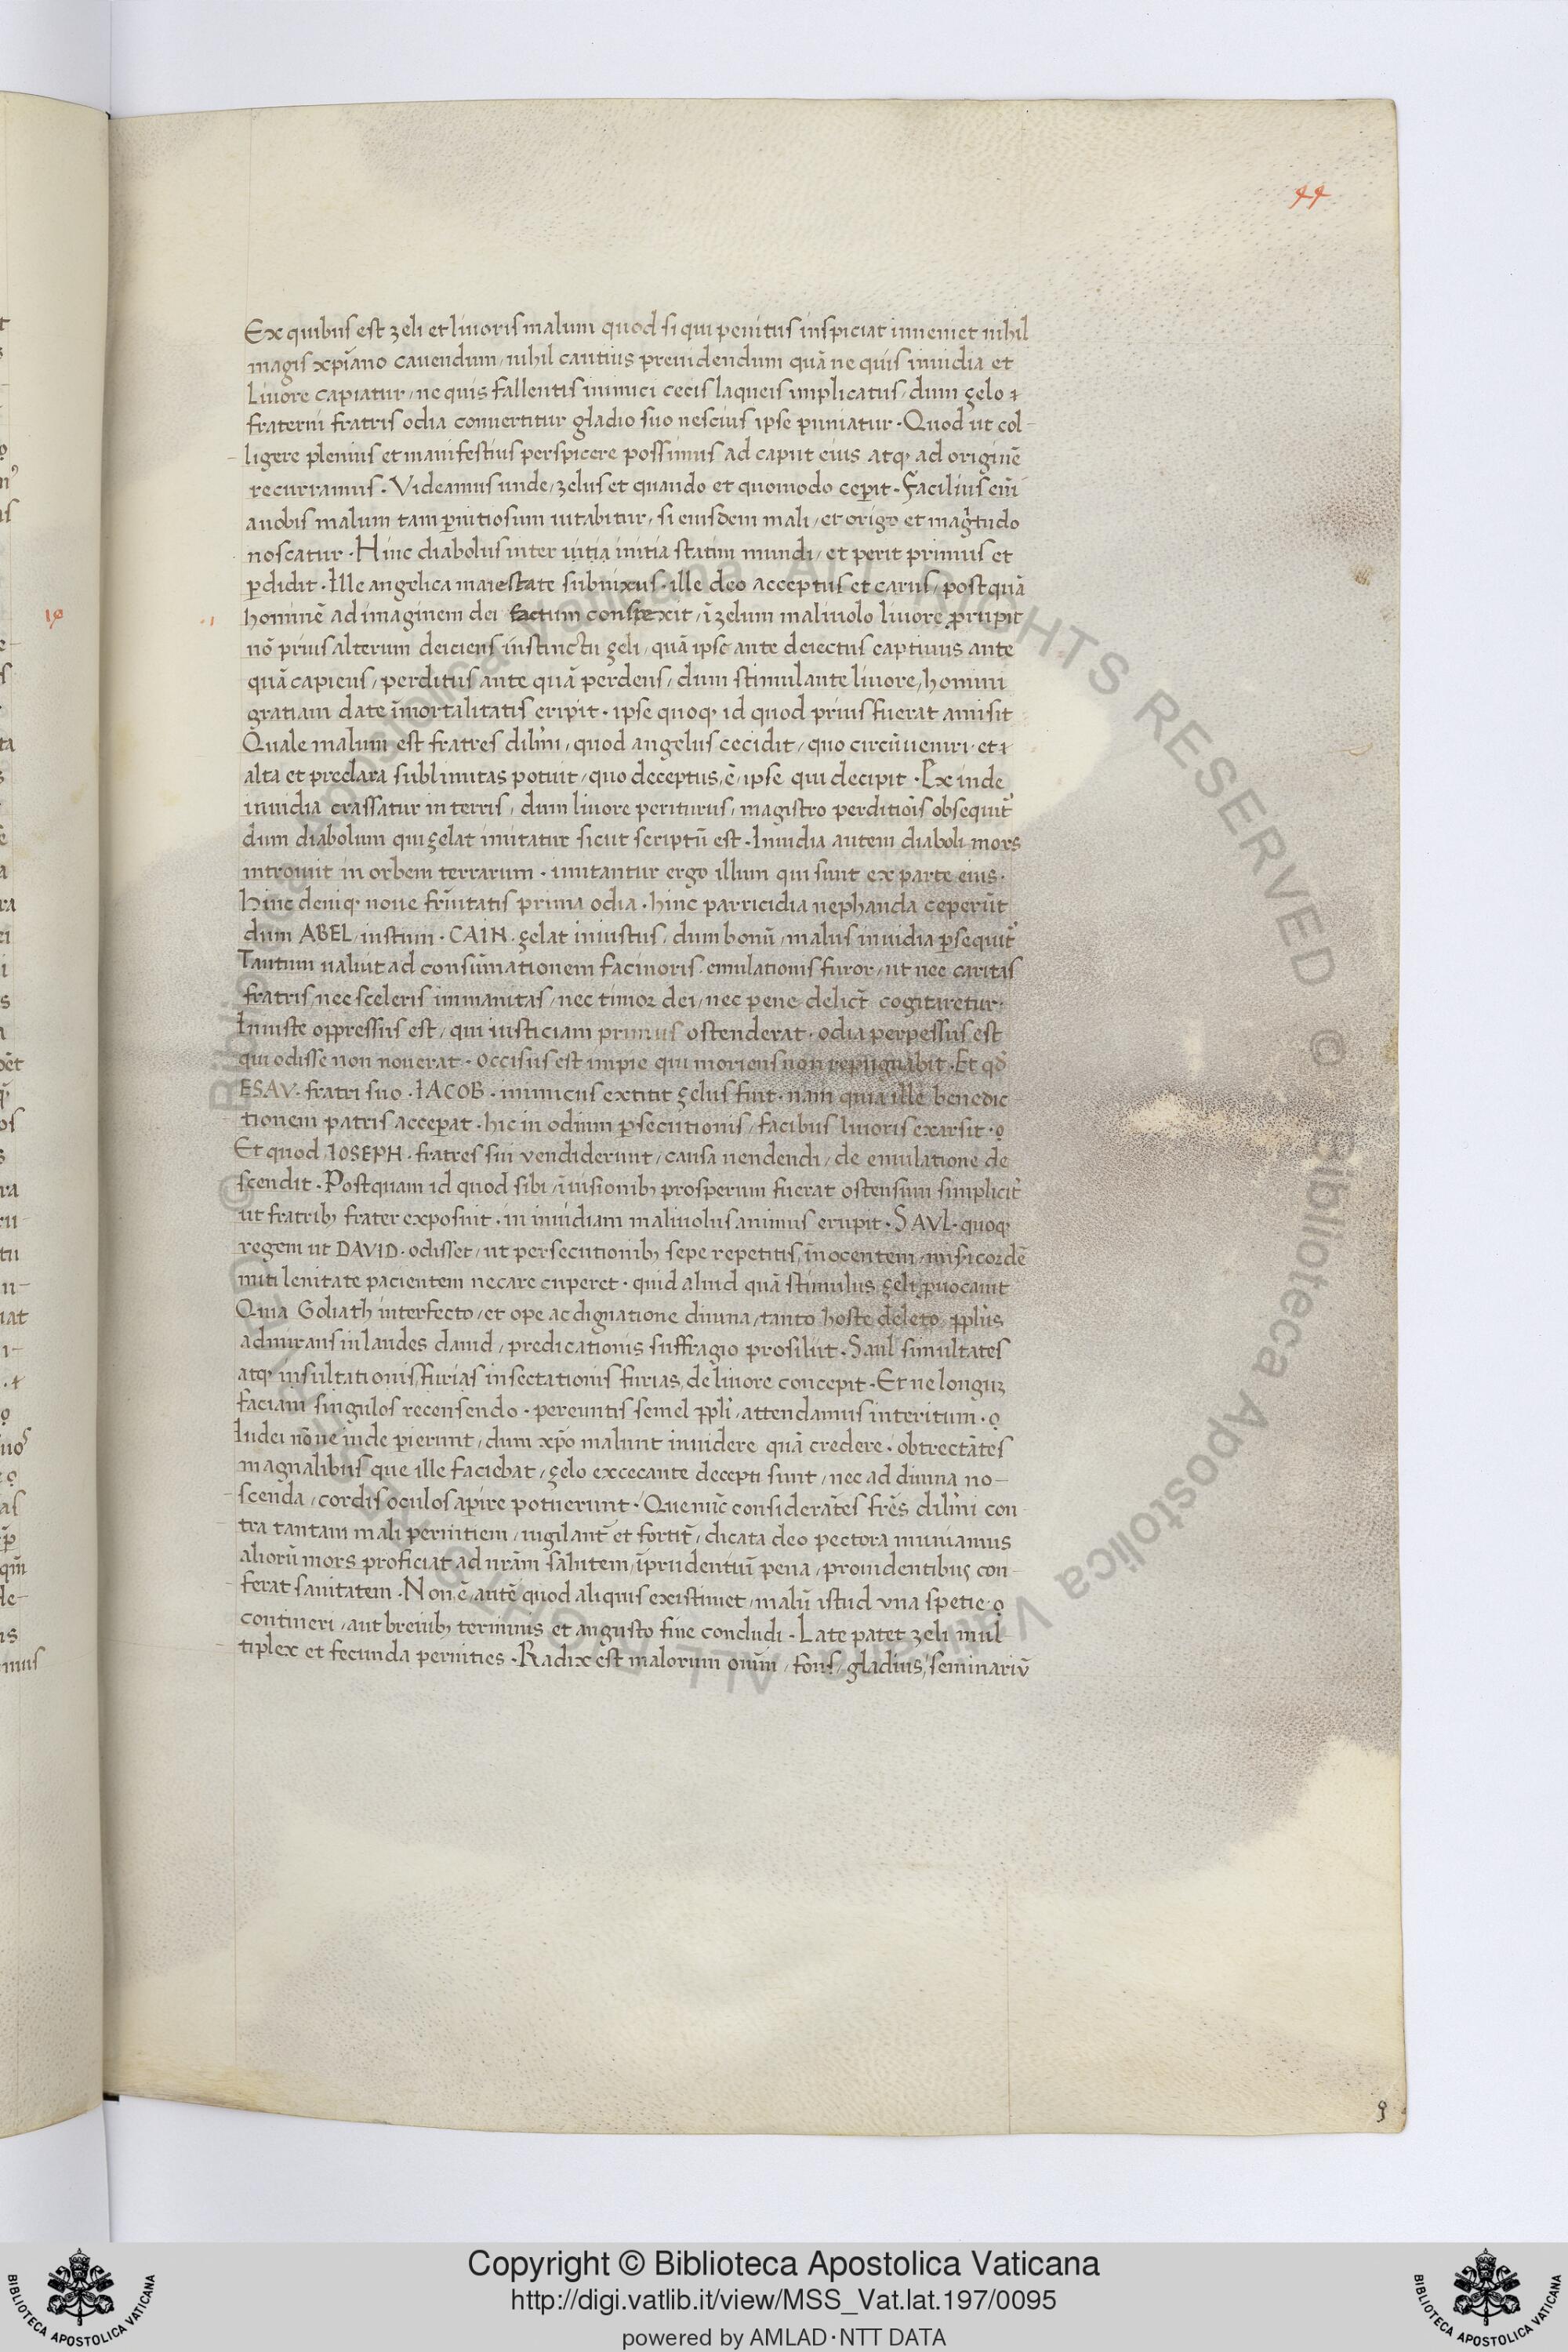 44
Ex quibus est zeli et liuoris malum quod si qui penitus inspiciat inueniet nihil
magis xp̄iano cauendum / nihil cautius preuidendum quā ne quis inuidia et
Liuore capiatur / ne quis fallentis inimici cecis laqueis implicatus / dum zelo
fraterni fratris odia conuertitur gladio suo nescius ipse puniatur · Quod ut col-
ligere plenius et manifestius perspicere possimus ad caput eius atq; ad originē
recurramus · Videamus unde / zelus et quando et quomodo cepit · Facilius eni̅
a uobis malum tam pnitiosum uitabitur / si eiusdem mali / et origo et magĩtudo
noscatur · Hinc diabolus inter uitia initia statim mundi / et perit primus et
pdidit · Ille angelica maiestate subnixus · ille deo acceptus et carus / postquā
hominē ad imaginem dei factum conspexit / ī zelum maliuolo liuore prupit
nō prius alterum deiciens instinctu zeli / quā ipse ante deiectus captiuus ante
quā capiens / perditus ante quā perdens / dum stimulante liuore / homini
gratiam date īmortalitatis eripit · ipse quoq; id quod prius fuerat amisit
Quale malum est fratres dilm̄i / quod angelus cecidit / quo circūueniri · et
alta et preclara sublimitas potuit / quo deceptus / ē / ipse qui decipit · Ex inde
inuidia crassatur in terris / dum liuore periturus / magistro perditiōis obsequit᷑
dum diabolum qui zelat imitatur sicut scriptū est · Inuidia autem diaboli mors
introiuit in orbem terrarum · imitantur ergo illum qui sunt ex parte eius ·
Hinc deniq; noue fr̄nitatis prima odia · hinc parricidia nephanda ceperūt
dum ABEL / iustum · CAIN · zelat iniustus / dum bonū / malus inuidia psequit᷑
Tantum ualuit ad consūmationem facinoris · emulationis furor / ut nec caritas
fratris / nec sceleris immanitas / nec timor dei / nec pene delict̄ cogitaretur ·
Iniuste oppressus est / qui iusticiam primus ostenderat · odia perpessus est
qui odisse non nouerat · occisus est impie qui moriens non repugnabit · Et qd̄
ESAV · fratri suo · IACOB · inimicus extitit zelus fuit · nam quia ille benedic
tionem patris acceperat · hic in odium psecutionis / facibus liuoris exarsit ·
Et quod IOSEPH · fratres sui vendiderunt / causa uendendi / de emulatione de
scendit · Postquam id quod sibi / ī uisionib; prosperum fuerat ostensum simplicit᷑
ut fratrib; frater exposuit · in inuidiam maliuolus animus erupit · SAVL · quoq;
regem ut DAVID · odisset / ut persecutionib; sepe repetitis / īnocentem / misicordē
miti lenitate pacientem necare cuperet · quid aliud quā stimulus zeli puocauit
Quia Goliath interfecto / et ope ac dignatione diuina / tanto hoste deleto pplus
admirans in laudes dauid / predicationis suffragio prosiluit · Saul simultates
atq; insultationis furias insectationis furias / de liuore concepit · Et ne longuz
faciam singulos recensendo · pereuntis semel ppli / attendamus interitum ·
Iudei nōne inde perierunt / dum xp̄o malunt inuidere quā credere · obtrectātes
magnalibus que ille faciebat / zelo excecante decepti sunt / nec ad diuina no-
scenda / cordis oculos apire potuerunt · Que nūc considerātes fr̄es dilm̄i con
tra tantam mali pernitiem / uigilant̄ et fortit̄ / dicata deo pectora muniamus
aliorū mors proficiat ad nr̄am salutem / īprudentiū pena / prouidentibus con-
ferat sanitatem · Non ē autē quod aliquis existimet / malū istud vna spetie
contineri / aut breuib; terminis et angusto fine concludi · Late patet zeli mul
tiplex et fecunda pernities · Radix est malorum oniū / fons / gladius / seminariū
Copyright © Biblioteca Apostolica Vaticana
http://digi.vatlib.it/view/MSS_Vat.lat.197/0095
powered by AMLAD·NTT DATA
BIBLIOTECA APOSTOLICA VATICANA
BIBLIOTECA APOSTOLICA VATICANA